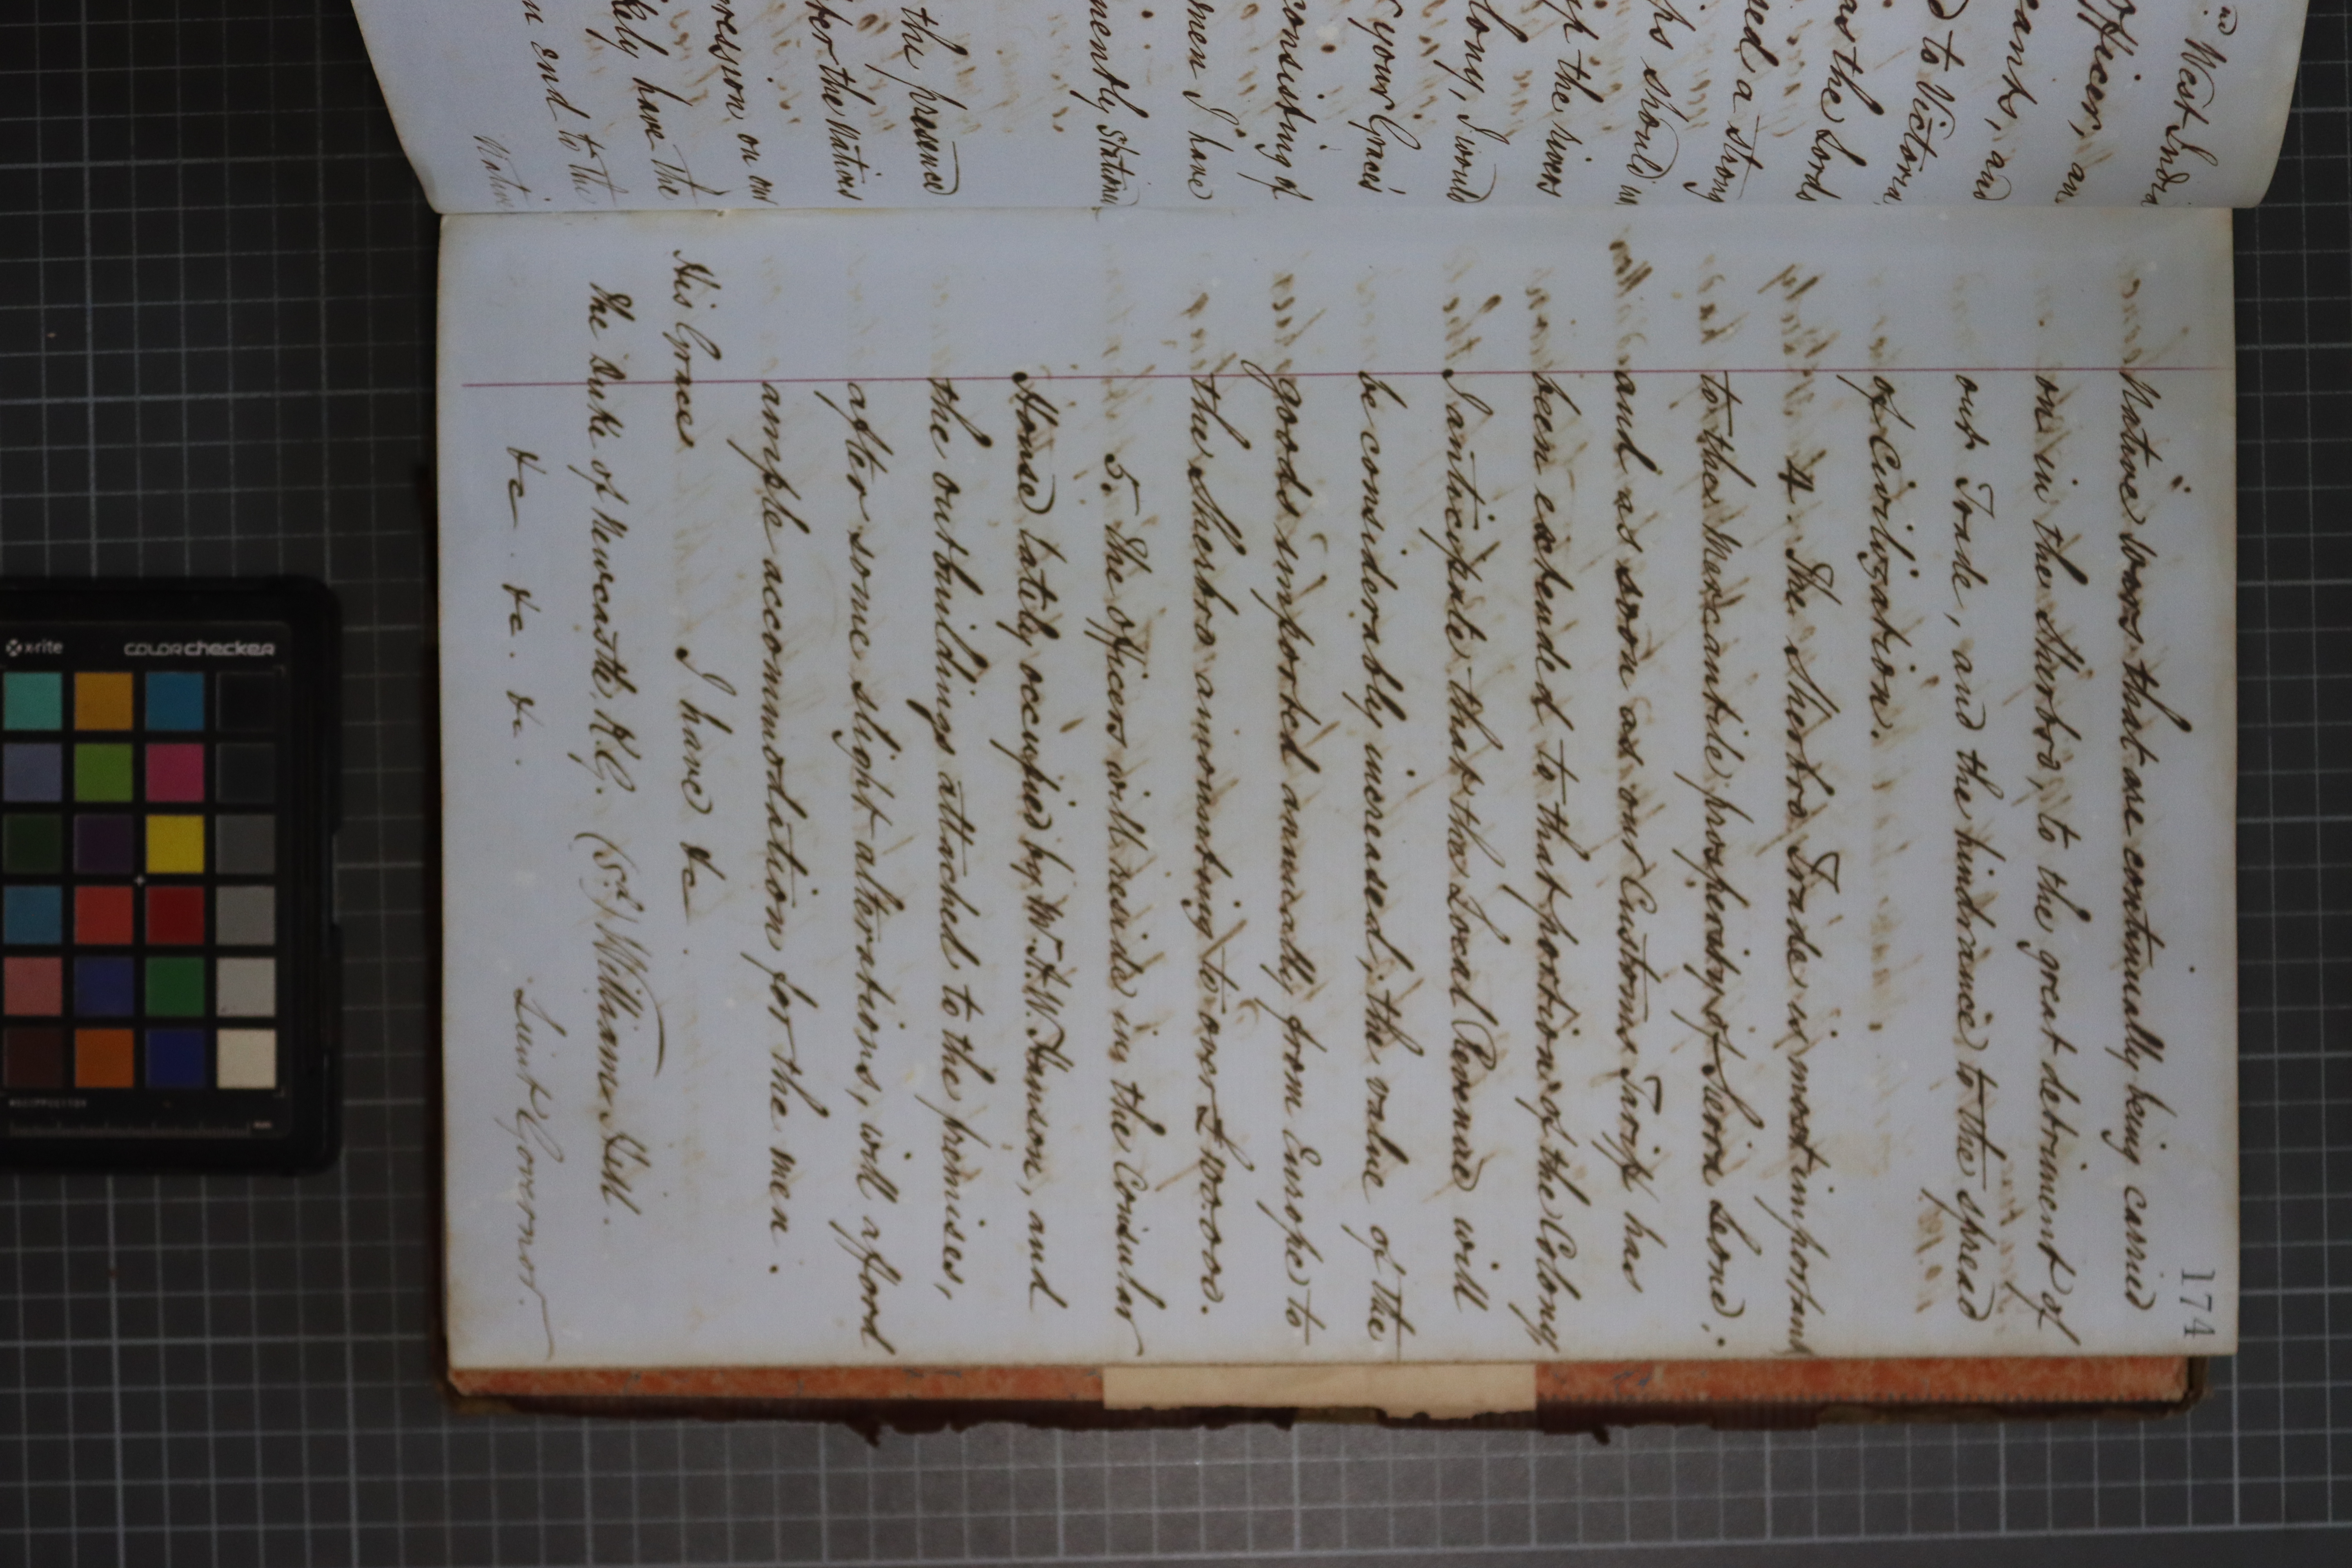 174
Native wars that are continually being carried
on in the Sherbro, to the great detriment of
our Trade, and the hindrance to the spread
of Civilization.
4. The Sherbro Trade is most important
to the Mercantile prosperity of Sierra Leone;
and as soon as our Customs Tariff has
been extended to that portion of the Colony
I anticipate that the Local Revenue will
be considerably increased; the value of the
goods imported annually from Europe to
the Sherbro amounting to over £100.000.
5. The officers will reside in the Consular
House lately occupied by Mr. A.W. Hanson, and
the outbuildings attached to the premises,
after some slight alterations, will afford
ample accommodation for the men.
I have &c.
His Grace
The Duke of Newcastle, K.G. (Sd) William Hill.
&c. &c. &c. Lieut Governor.
West India
Officer, an
and
to Victoria
as the Lords
a strong
ips should in
up the rivers
I would
your Grace's
consisting of
men I have
mently station
the presence
the Natives
on our
have the
an end to the
Native
x-rite
colorchecker